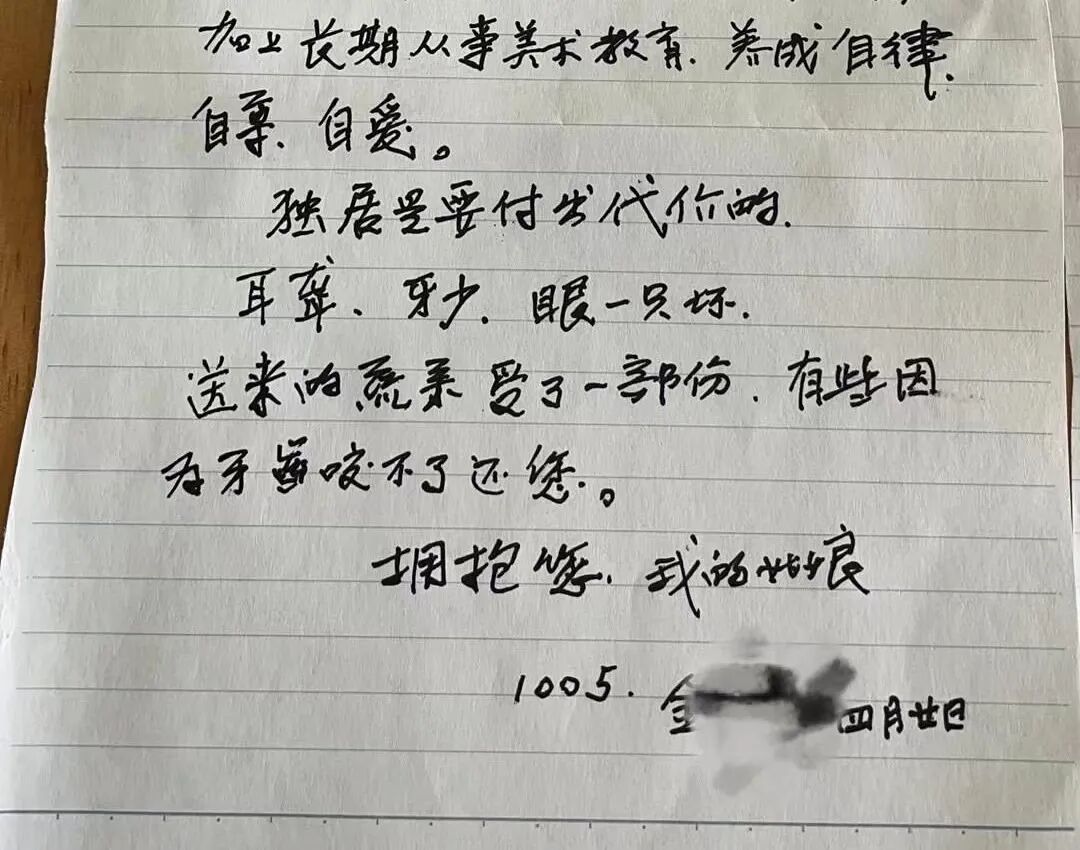 加上长期从事美术教育、养成自律、
自尊、自爱。
独居是要付出代价的、
耳聋、牙少、眼一只坏、
送来的蔬菜受了一部份、有些因
为牙齿咬不了还您。
拥抱您、我的姑娘
1005. 金 四月廿日